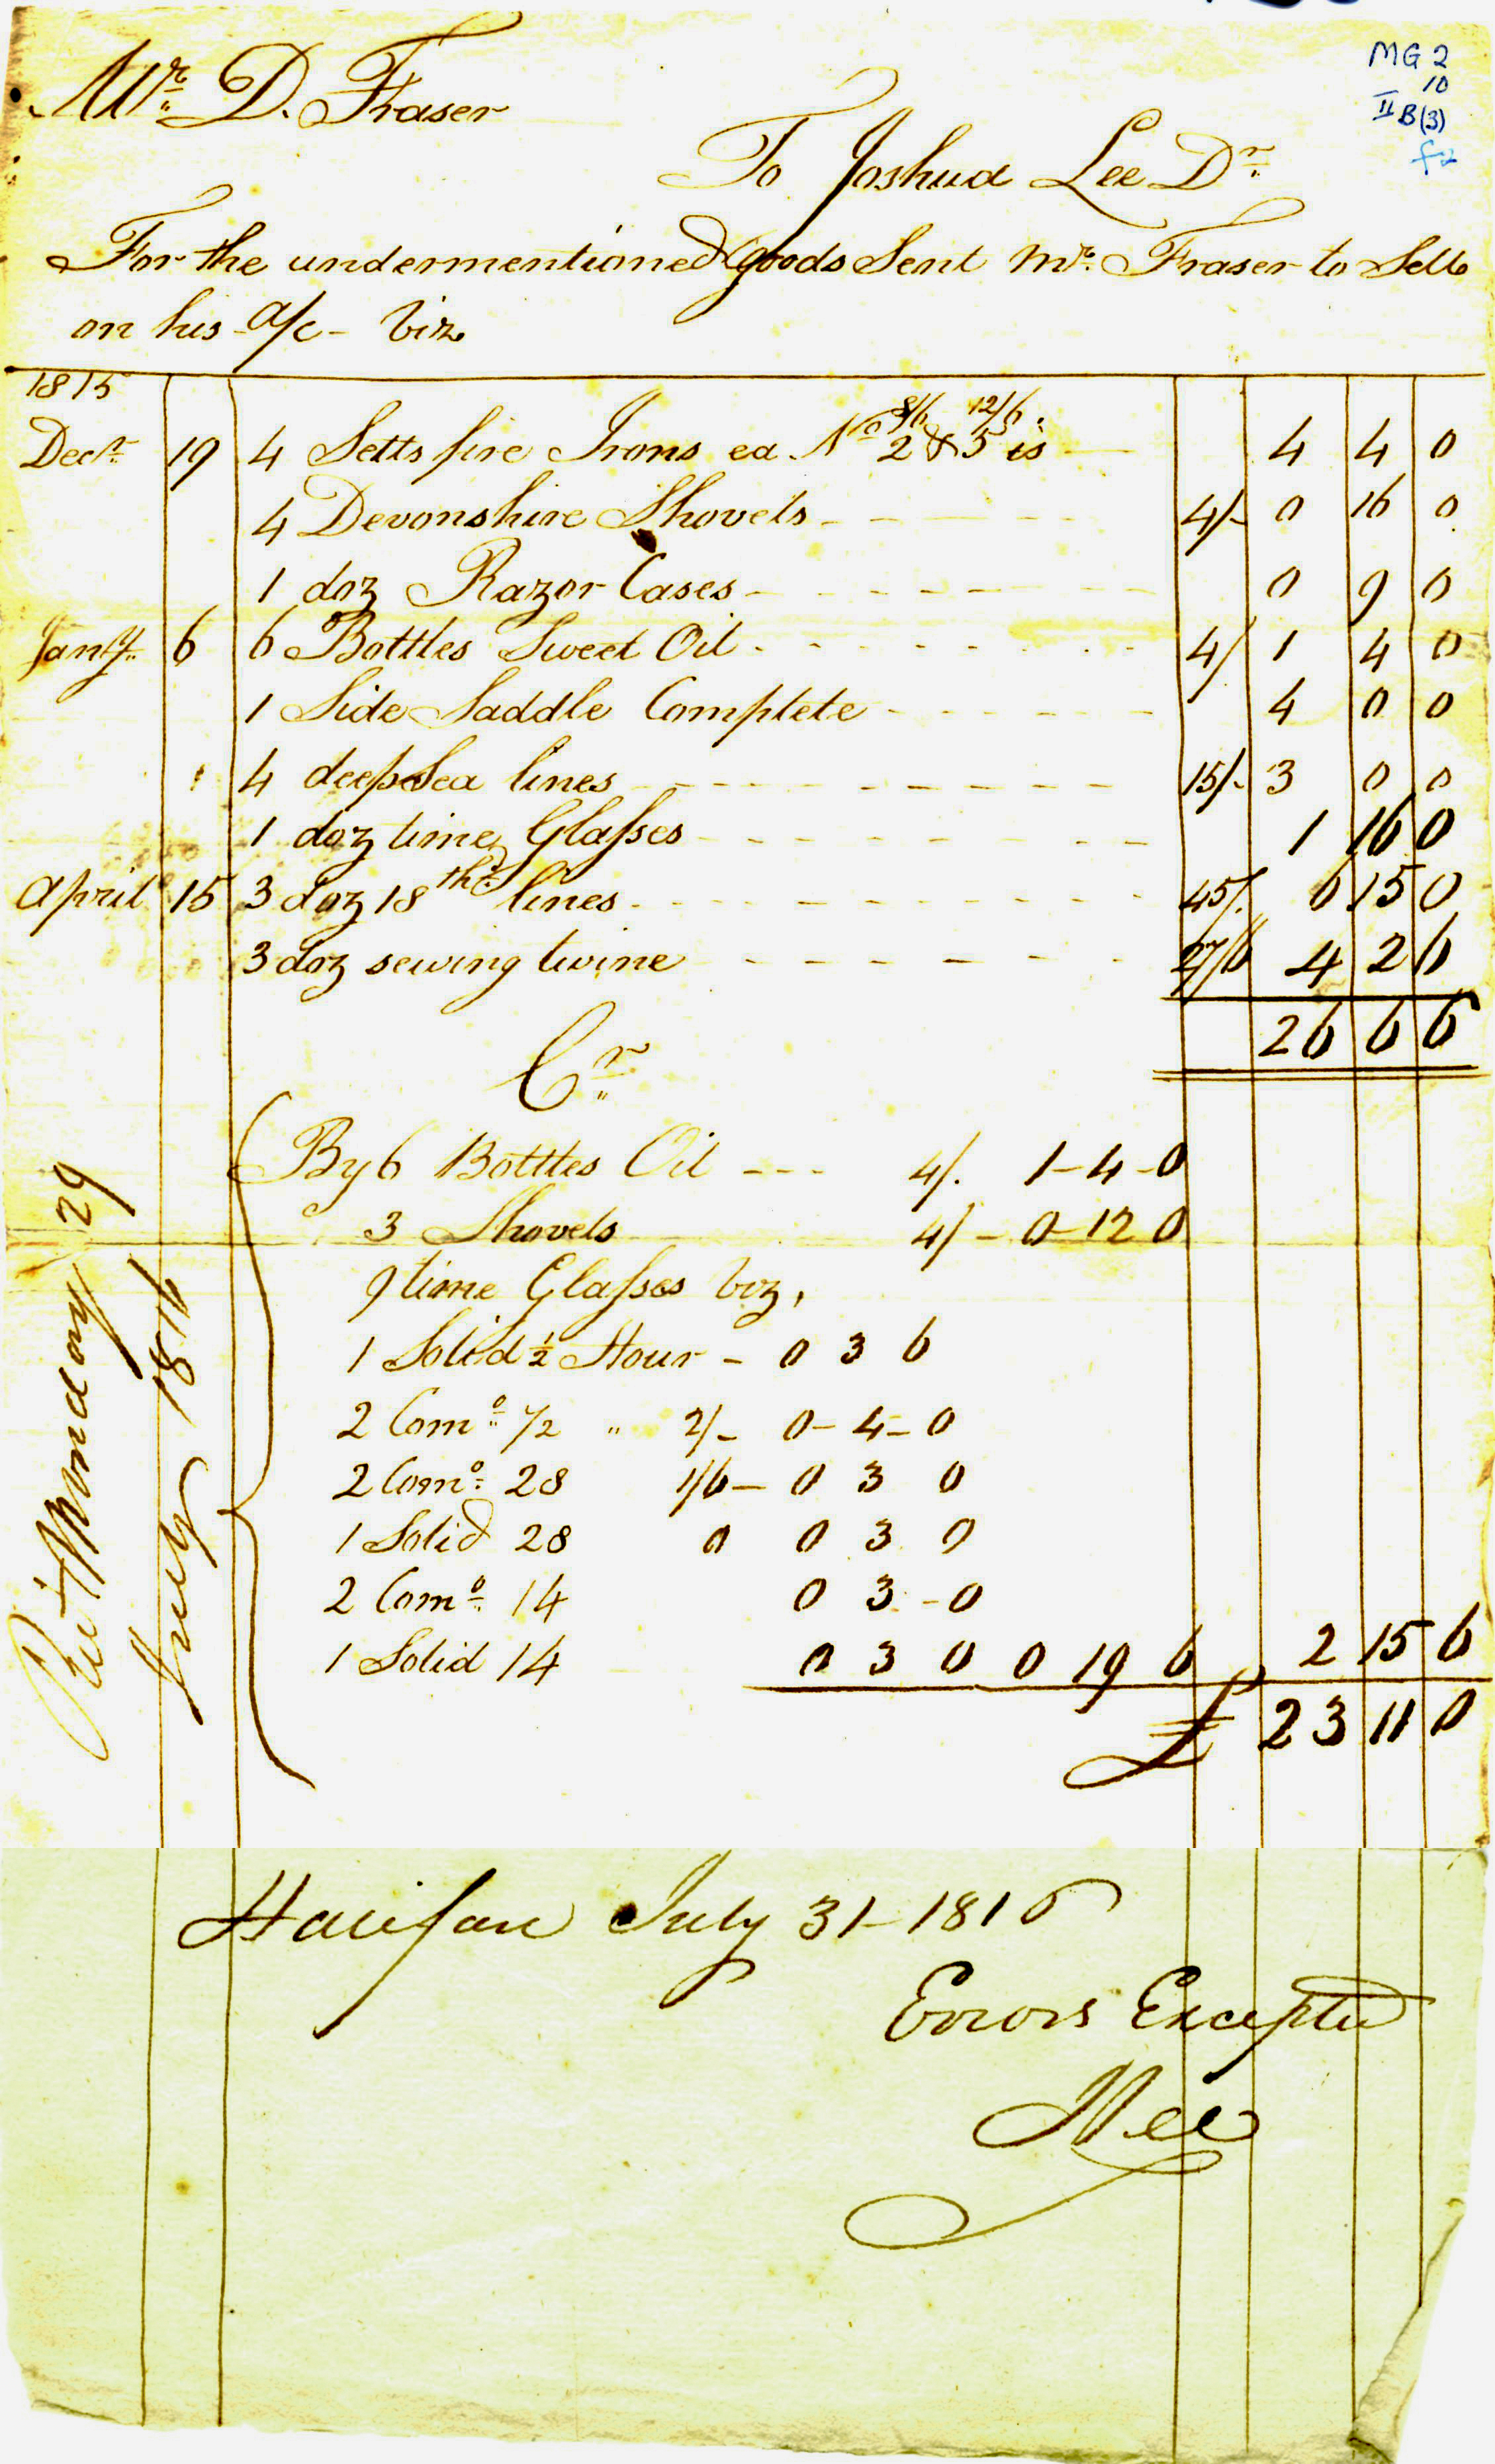 MG 2
10
II B(3)
f2
Mr. D. Fraser
To Joshua Lee Dr.
For the undermentioned Goods Sent Mr. Fraser to Sell
on his a/c - viz
1815
8/6 12/6
Decr. 19 4 Setts fire Irons ea No 2 & 5 is 4 4 0
4 Devonshire Shovels 4/- 0 16 0
1 doz Razor Cases 0 9 0
Jany. 6 6 Bottles Sweet Oil 4/ 1 4 0
1 Side Saddle Complete 4 0 0
4 deep Sea lines 15/- 3 0 0
1 doz time Glasses 1 16 0
April 15 3 doz 18 thd. lines 45/. 6 15 0
3 doz sewing twine 27/6 4 2 6
26 6 6
Cr.
By 6 Botttes Oil --- 4/. 1-4-0
3 Shovels 4/- 0-12 0
9 time Glasses viz,
1 Solid 1/2 Hour - 0 3 6
2 Como. 1/2 " 2/- 0-4-0
2 Como. 28 1/6- 0 3 0
1 Solid 28 0 0 3 0
2 Como. 14 0 3 -0
1 Solid 14 0 3 0 0 19 6 2 15 6
£ 23 11 0
Monday 29
July 1816
Halifax July 31-1816
Errors Excepted
JLee